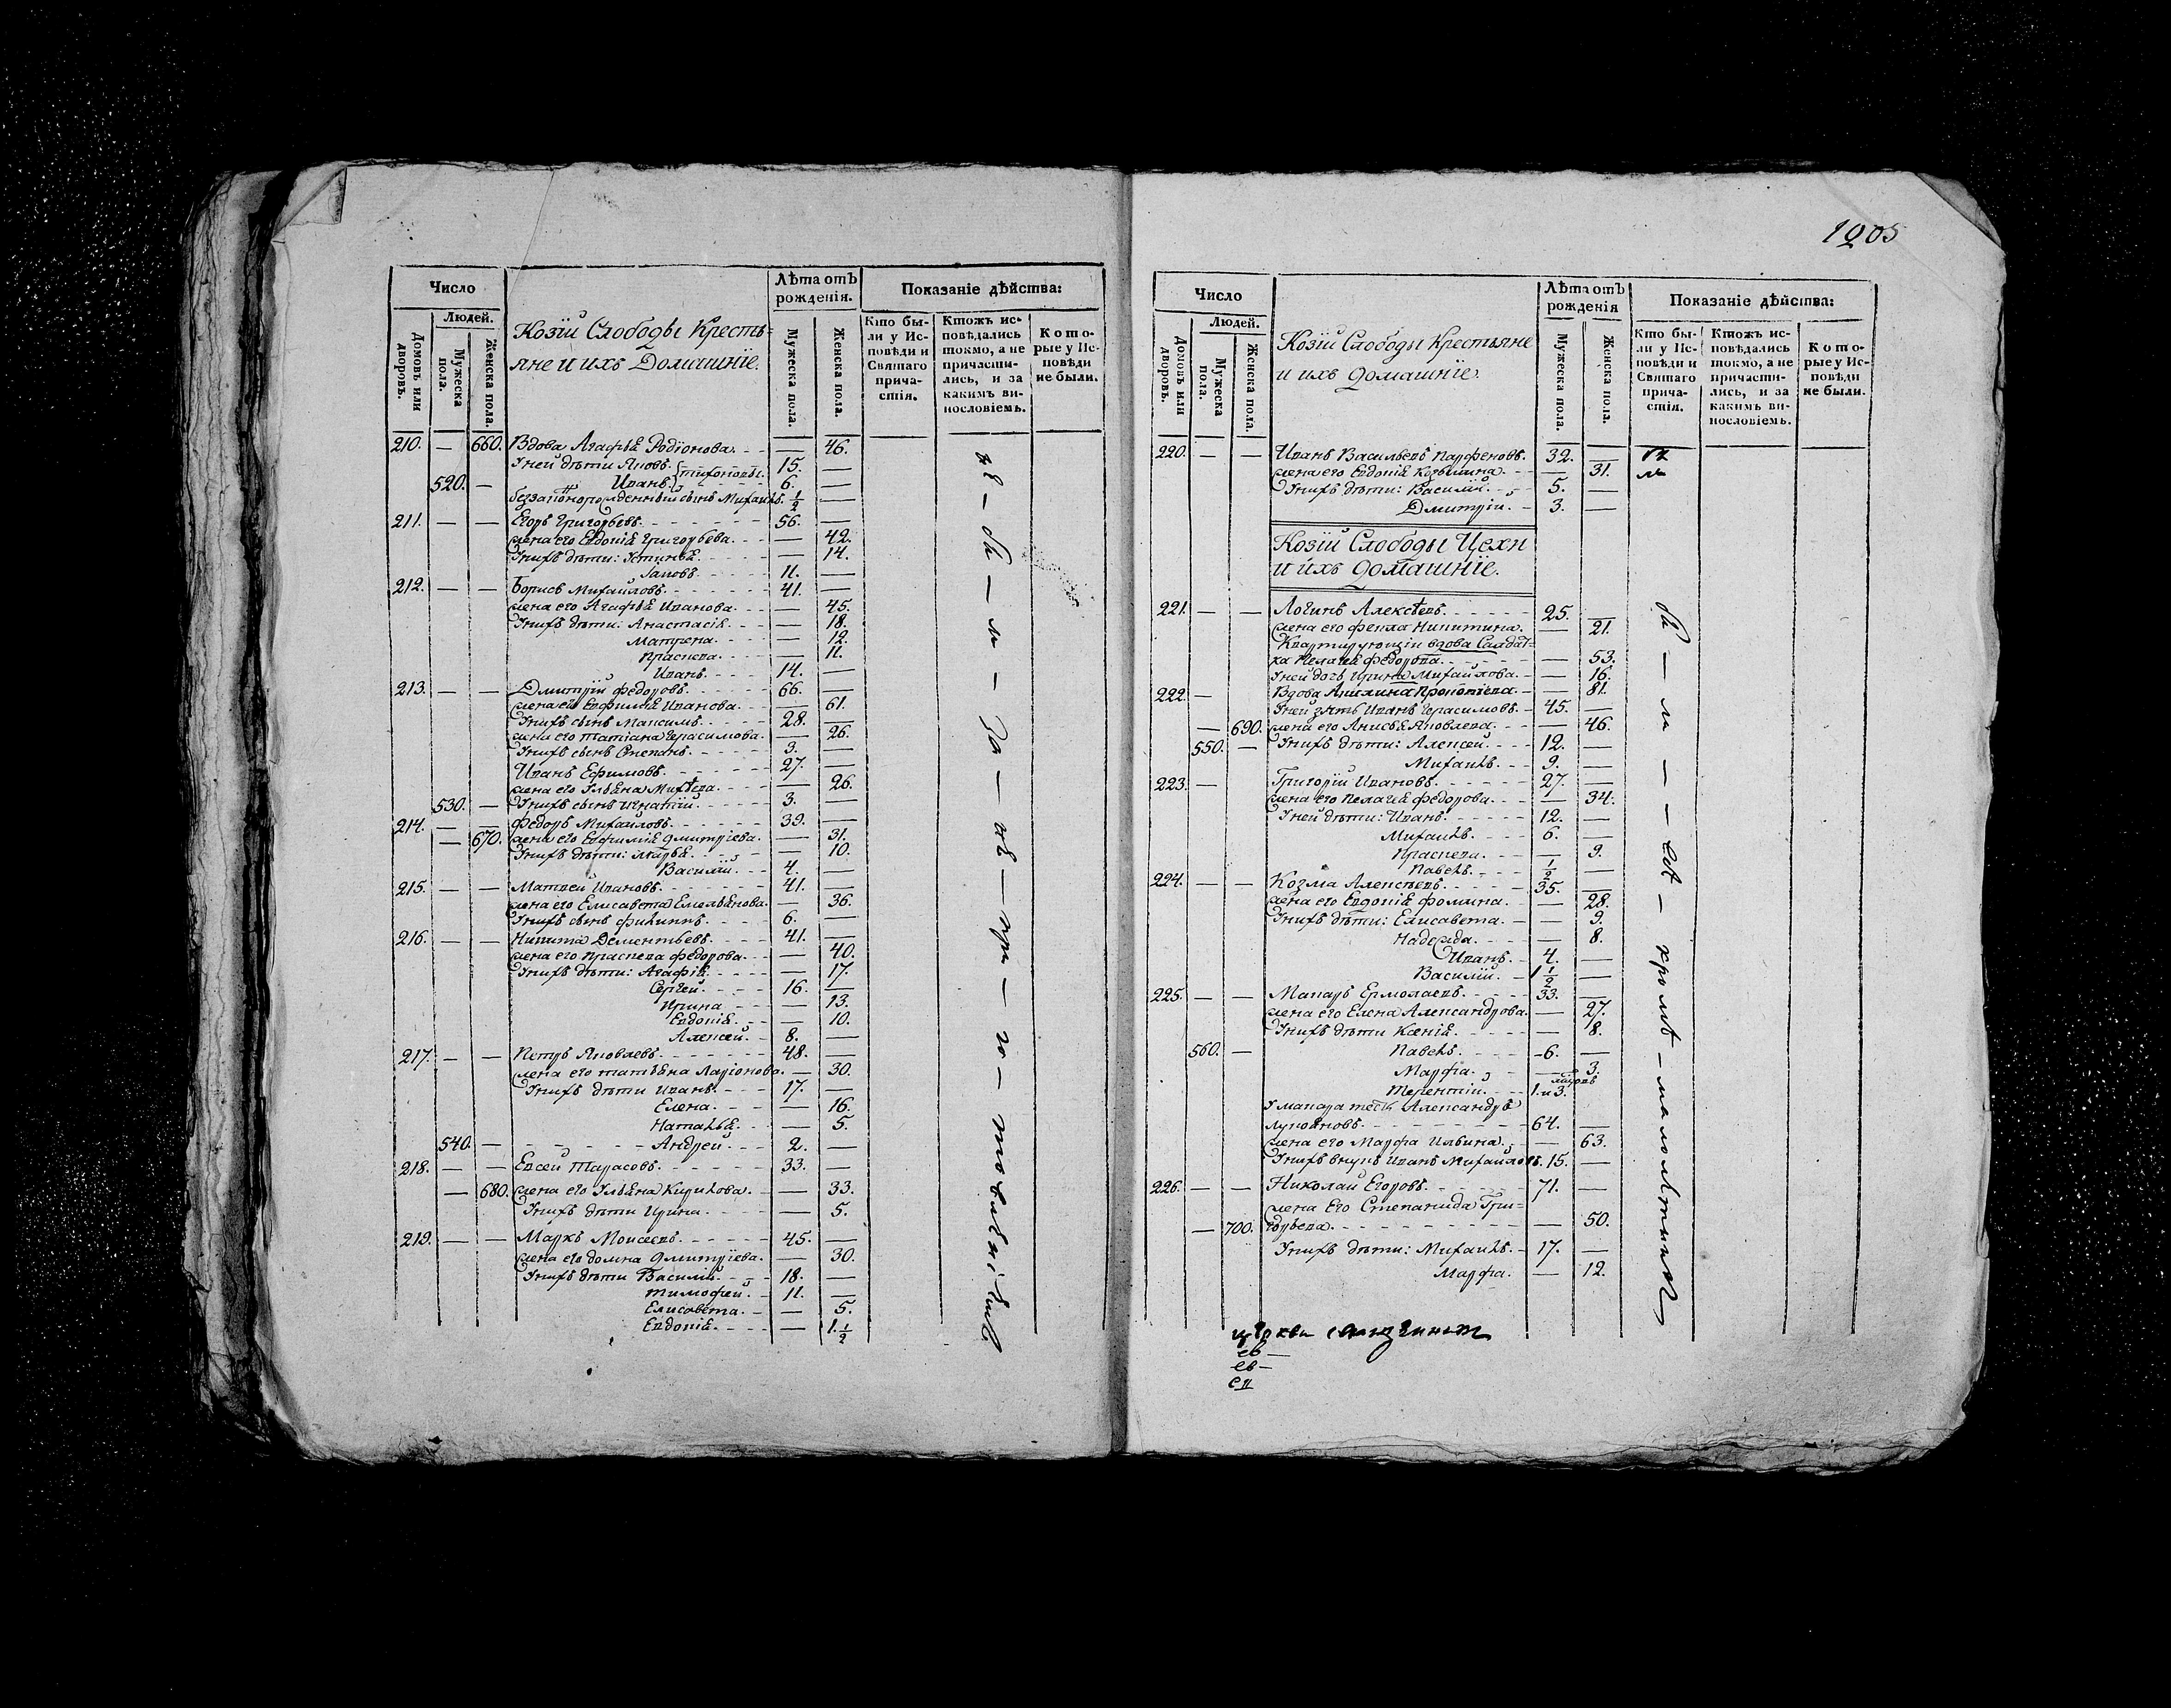 Число
Людей.
Домовъ или дворовъ.
Мужеска пола.
Женска пола.
Козїй Слободы Кресть=
яне и ихъ Домашнїе.
Лѣта отъ рожденія.
Мужеска пола.
Женска пола.
Показаніе дѣйства:
Кто бы-
ли у Ис-
повѣди и
Святаго
прича-
стія.
Ктожъ ис-
повѣдались
токмо, а не
причасти-
лись, и за
какимъ ви-
нословіемъ.
Кото-
рые у Ис-
повѣди
не были.
210. — 660. Вдова Агафья Родїонова. — 46.
Уней дѣти Яковъ. 15. —
520. — Иванъ. 6. —
беззаконорожденный сынъ Михаилъ. ½ —
211. — — Егоръ Григорьевъ. 56. —
жена его Евдокія Григорьева. — 42.
Унихъ дѣти: Устинья. — 14.
Іаковъ. 11. —
212. — — Борисъ Михайловъ. 41. —
жена его Агафья Иванова. — 45.
Унихъ дѣти: Анастасія. — 18.
Матрена. — 12.
Праскева. — 11.
Иванъ. 14. —
213. — — Дмитрїй Федоровъ. 66. —
жена его Евфимія Иванова. — 61.
Унихъ сынъ Максимъ. 28. —
жена его Татіана Герасимова. — 26.
Унихъ сынъ Степанъ. 3. —
Иванъ Ефимовъ. 27. —
жена его Ульяна Михѣева. — 26.
530. — Унихъ сынъ Игнатїй. 3. —
214. — — Федоръ Михайловъ. 39. —
— 670. жена его Евфимія Дмитрїева. — 31.
Унихъ дѣти: Марья. — 10.
Василїй. 4. —
215. — — Матвей Ивановъ. 41. —
жена его Елисавета Емельянова. — 36.
Унихъ сынъ Филиппъ. 6. —
216. — — Никита Дементьевъ. 41. —
жена его Праскева Федорова. — 40.
Унихъ дѣти: Агафія. — 17.
Сергей. 16. —
Ирина — 13.
Евдокія. — 10.
Алексей. 8. —
217. — — Петръ Яковлевъ. 48. —
жена его Татьяна Ларіонова. — 30.
Унихъ дѣти Иванъ. 17. —
Елена. — 16.
Наталья. — 5.
540. — Андрей. 2. —
218. — — Евсей Тарасовъ. 33. —
— 680. жена его Ульяна Кирилова. — 33.
Унихъ дѣти Ирина. — 5.
219. — — Маркъ Моисеевъ. 45. —
жена его Домна Дмитрїева. — 30.
Унихъ дѣти Василїй. 18. —
Тимофей. 11. —
Елисавета. — 5.
Евдокія. — 1.½
1205
Число
Людей.
Домовъ или дворовъ.
Мужеска пола.
Женска пола.
Козїй Слободы Крестьяне
и ихъ домашнїе.
Лѣта отъ рожденія
Мужеска пола.
Женска пола.
Показаніе дѣйства:
Кто бы-
ли у Ис-
повѣди и
Святаго
прича-
стія.
Ктожъ ис-
повѣдались
токмо, а не
причасти-
лись, и за
какимъ ви-
нословіемъ.
Кото-
рые у Ис-
повѣди
не были.
220. — — Иванъ Васильевъ Парфеновъ. 32. —
жена его Евдокія Козьмина. — 31.
Унихъ дѣти: Василїй. 5. —
Дмитрїй. 3. —
Козїй Слободы Цехи
и ихъ домашнїе.
221. — — Логинъ Алексѣевъ. 25. —
жена его Фекла Никитина. — 21.
Квартирующїи вдова Салдат=
ка Пелагея Федорова. — 53.
Уней дочь Ирина Михайлова. — 16.
222. — Вдова Акилина Прокопіева. — 81.
Уней зять Иванъ Герасимовъ. 45. —
— 690. жена его Анисья Яковлева. — 46.
550. — Унихъ дѣти: Алексей. 12. —
Михаилъ. 9. —
223. — Григорїй Ивановъ. 27. —
жена его Пелагея Федорова. — 34.
Уней дѣти: Иванъ. 12. —
Михаилъ. 6. —
Праскева. — 9.
Павелъ. ½ —
224. — — Козма Алексѣевъ. 35. —
жена его Евдокія Фомина. — 28.
Унихъ дѣти: Елисавета. — 9.
Надежда. — 8.
Иванъ. 4. —
Василїй. 1½ —
225. — — Макаръ Ермолаевъ. 33. —
жена его Елена Александрова. — 27.
Унихъ дѣти Ксенія. — 8.
560. — Павелъ. 6. —
Марфа. — 3.
Терентїй. 1. и 3.
У макара тесть Александръ
Лукояновъ. 64. —
жена его Марфа Ильина. — 63.
Унихъ внукъ Иванъ Михайловъ. 15. —
226. — — Николай Егоровъ. 71. —
жена его Степанида Гри=
— 700. горьева. — 50.
Унихъ дѣти: Михаилъ. 17. —
Марфа. — 12.
кромѣ — малолѣтныхъ